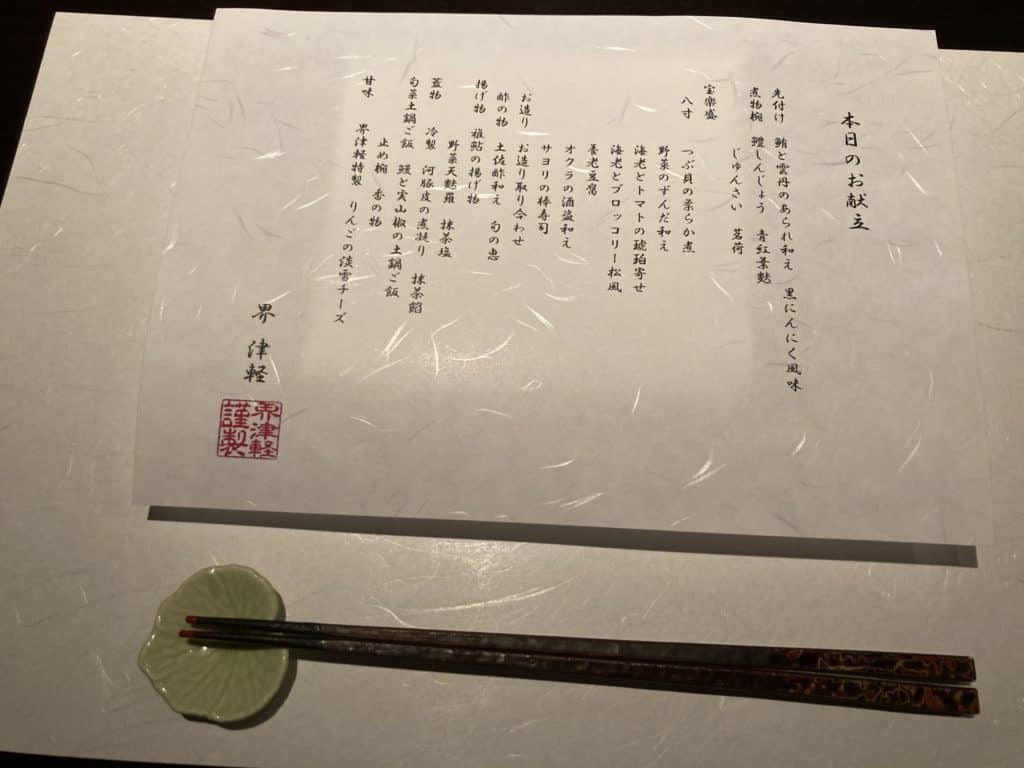 本日のお献立
先付け 鮪と雲丹のあられ和え 黒にんにく風味
煮物椀 鱧しんじょう 青紅葉麩
じゅんさい 茗荷
宝楽盛
八寸 つぶ貝の柔らか煮
野菜のずんだ和え
海老とトマトの琥珀寄せ
海老とブロッコリー松風
養老豆腐
オクラの酒盗和え
サヨリの棒寿司
お造り お造り取り合わせ
酢の物 土佐酢和え 旬の恵
揚げ物 稚鮎の揚げ物
野菜天麩羅 抹茶塩
蓋物 冷製 河豚皮の煮凝り 抹茶餡
旬菜土鍋ご飯 鰻と実山椒の土鍋ご飯
止め椀 香の物
甘味 界津軽特製 りんごの淡雪チーズ
界 津軽
界津軽
謹製